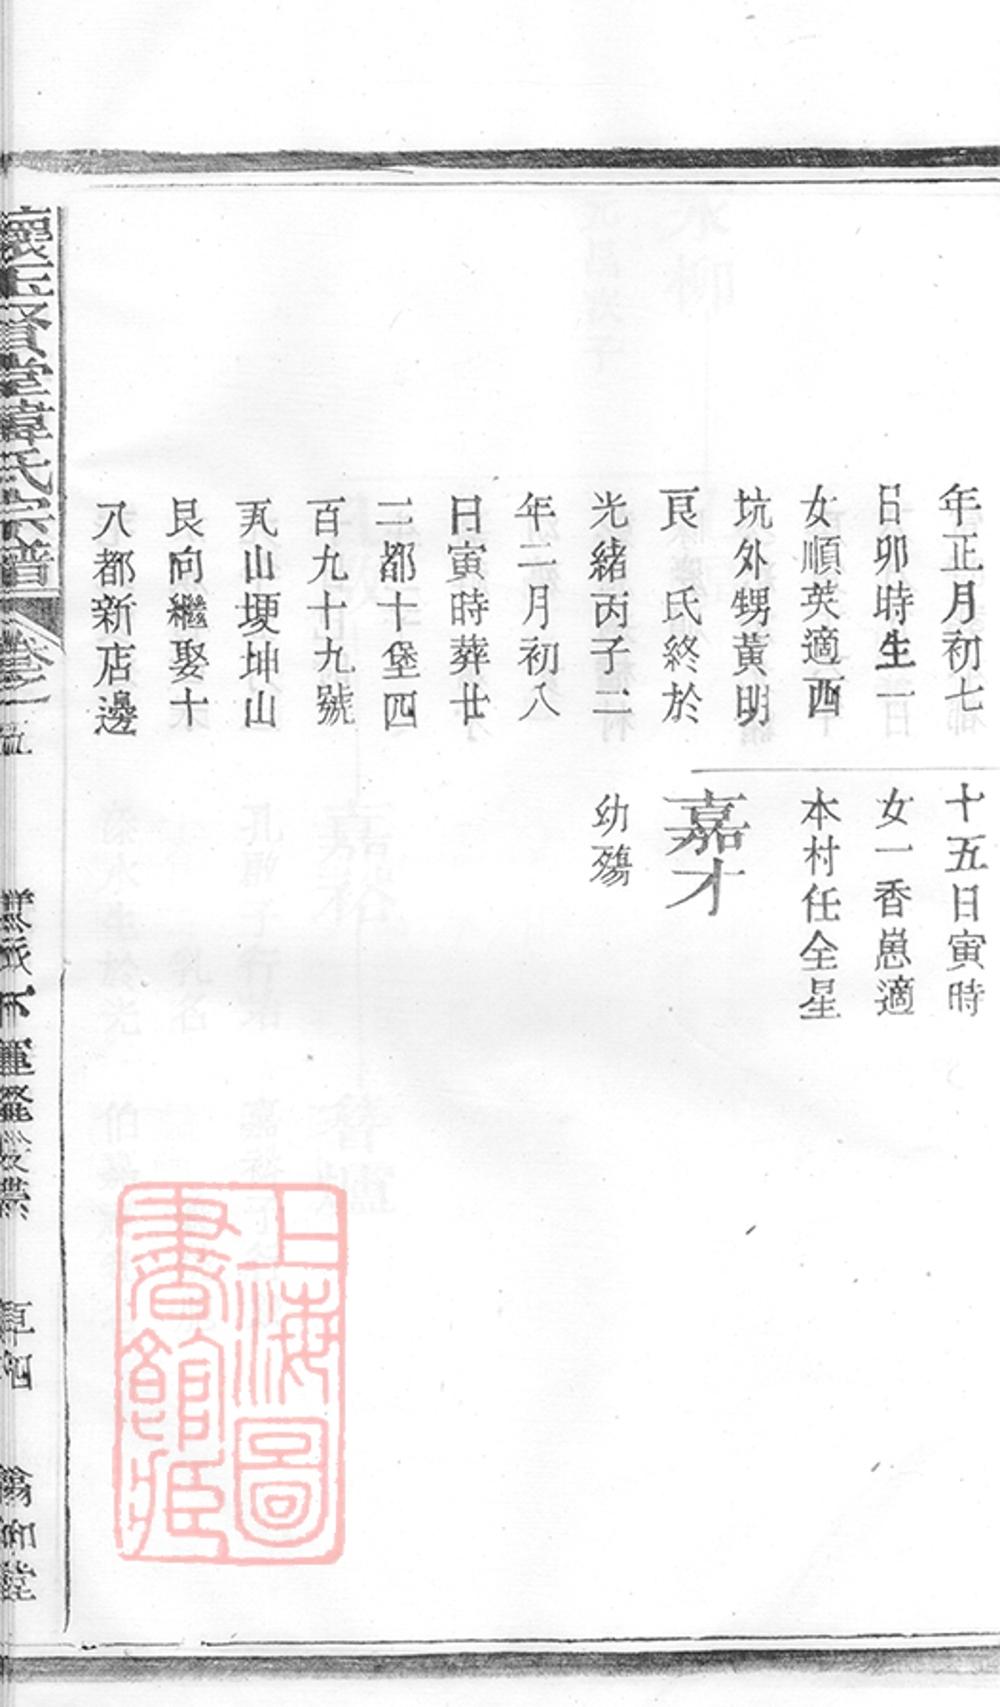 年正月初七
日卯時生一
女順英適西
坑外甥黃明
良　氏終於
光緒丙子二
年二月初八
日寅時葬廿
二都十堡四
百九十九號
瓦山埂坤山
艮向繼娶十
八都新店邊
十五日寅時
女一香嵬適
本村任全星
嘉才
幼殤
賢堂韋氏宗譜
卷之一
上海圖書館藏